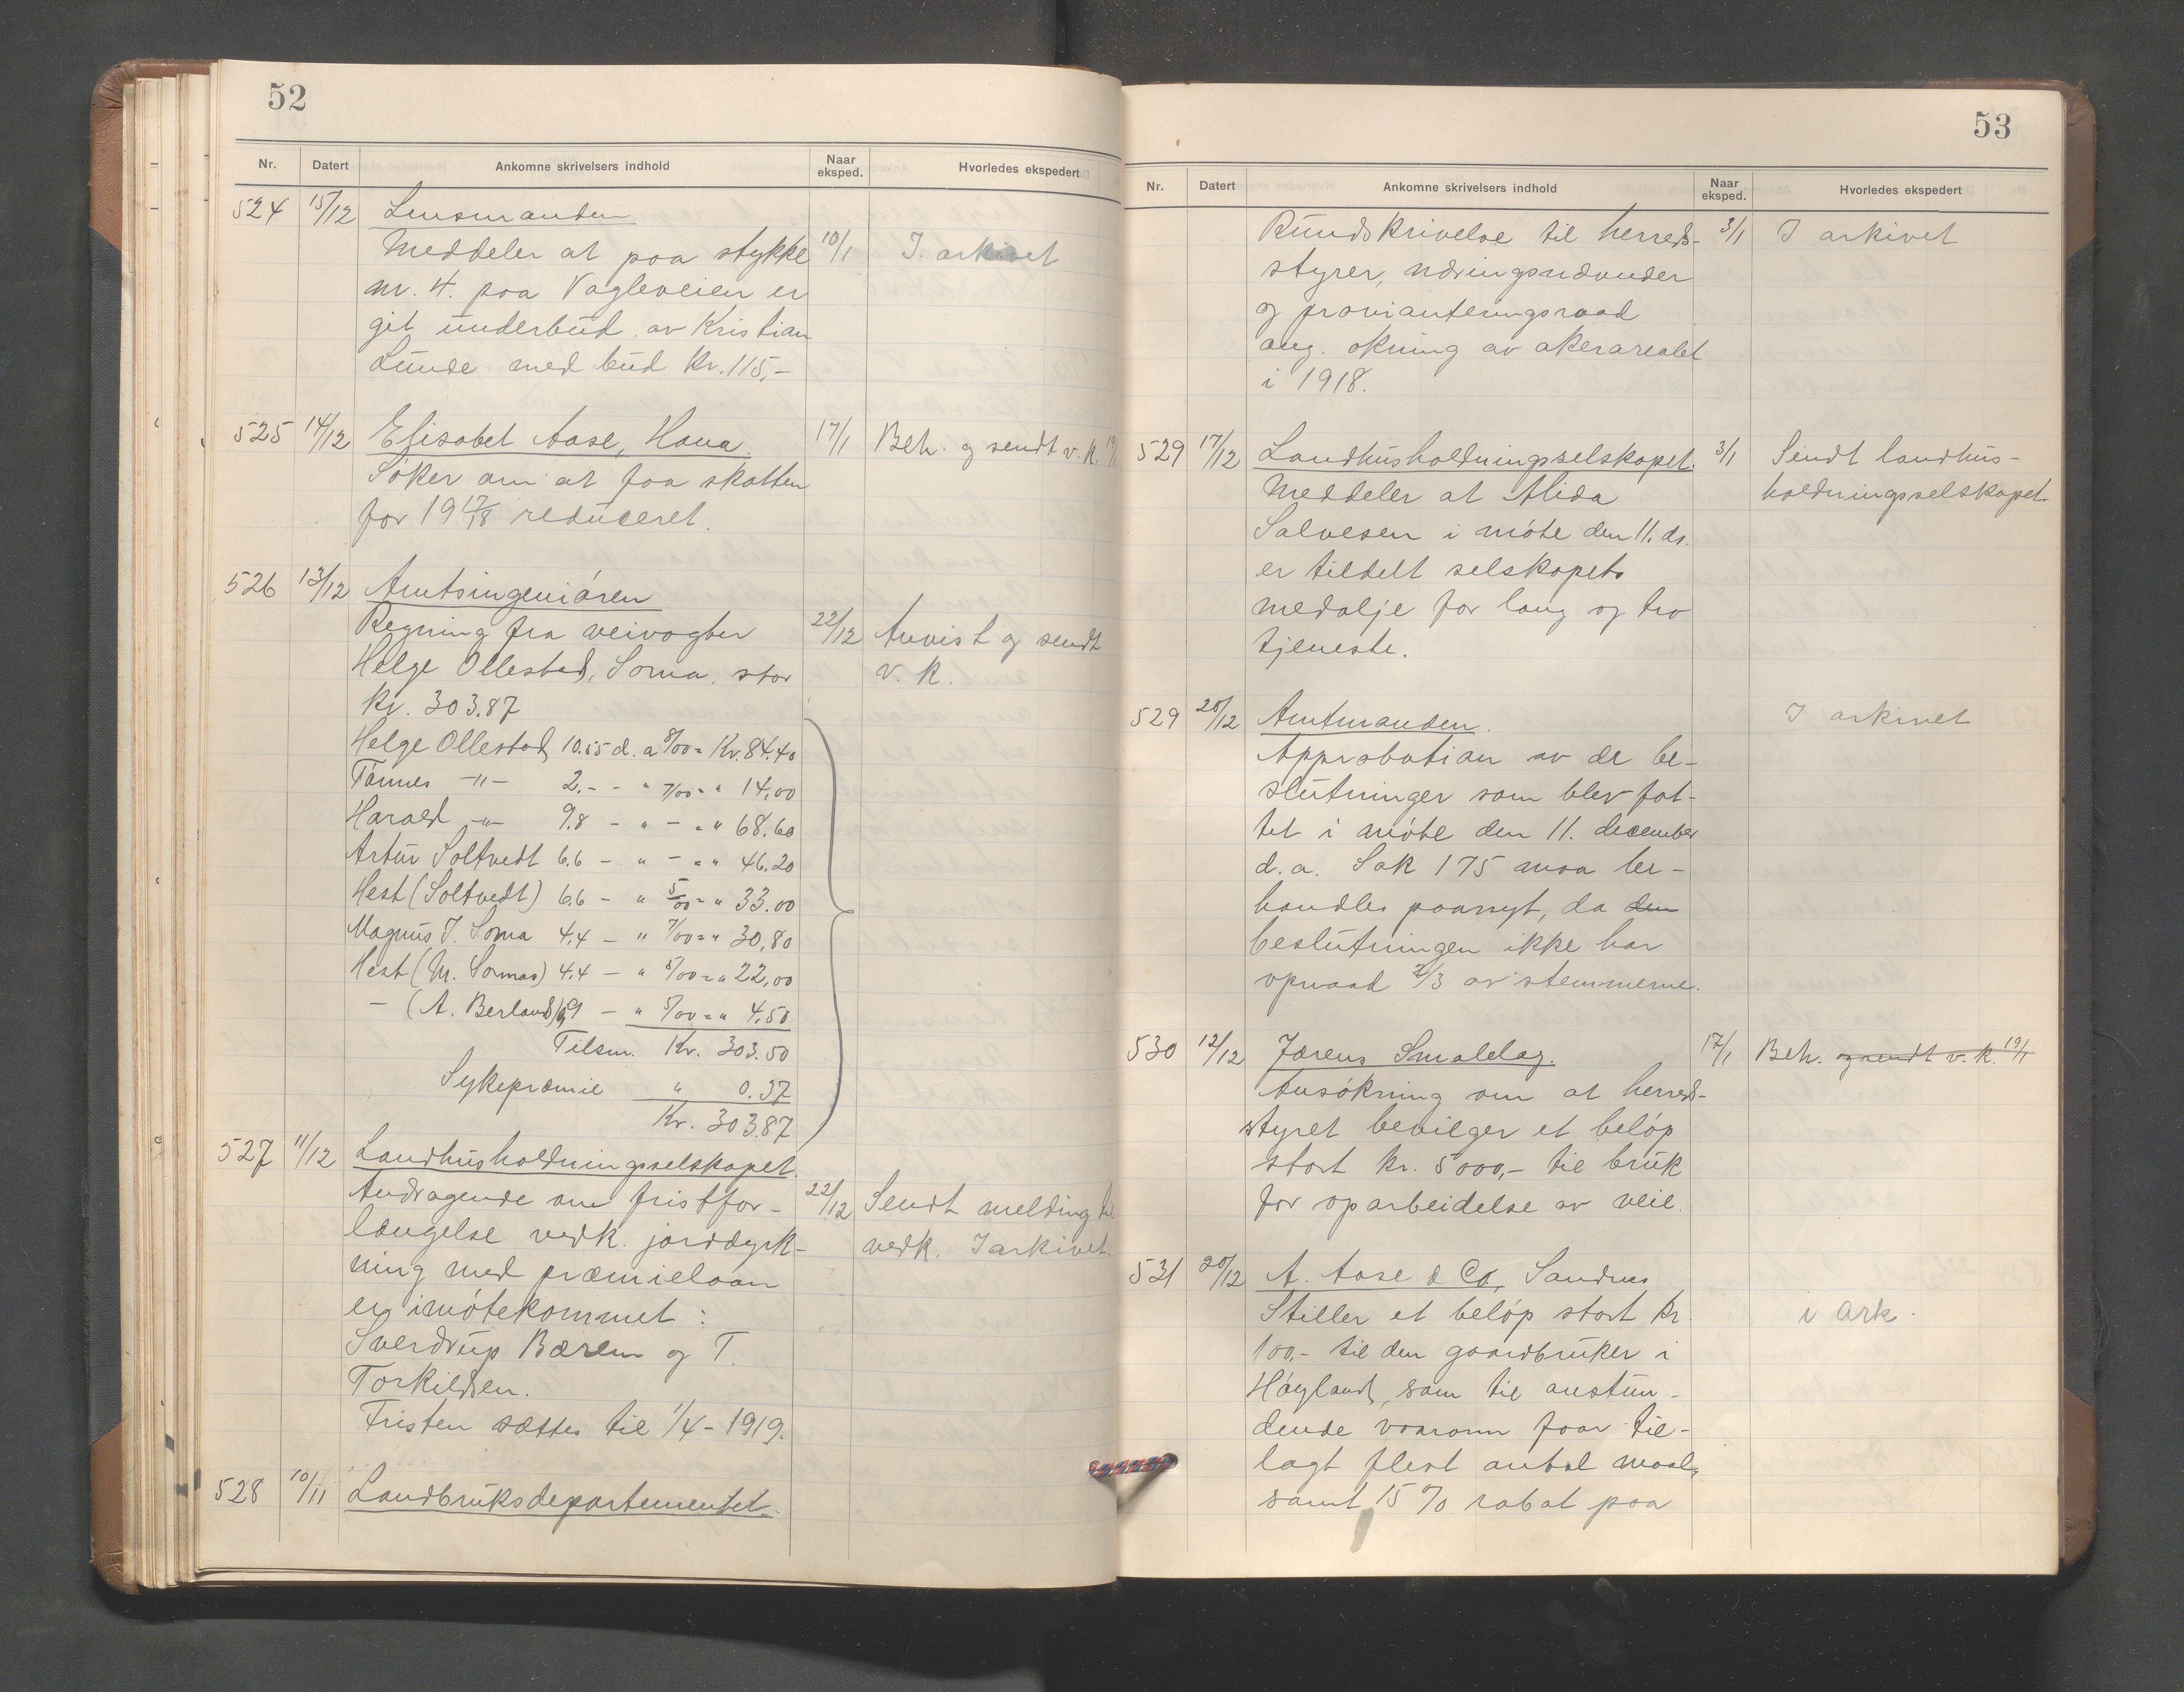 52
Nr. Datert Ankomne skrivelsers indhold Naar eksped. Hvorledes ekspedert
524 15/12 Lensmanden
Meddeler at paa stykke 10/1 I. arkivet
nr. 4. paa Vagleveien er
git underbud av Kristian
Lunde med bud Kr. 115,-
525 14/12 Elisabet Aase, Hana. 17/1 Beh. og sendt v. k. 19/1
Søker om at faa skatten
for 19 17/18 reduceret.
526 13/12 Amtsingeniøren
Regning fra veivogter 22/12 Anvist og sendt
Helge Ollestad, Soma, stor v. k.
kr. 303.87
Helge Ollestad 10.55 d. a 8/00 = Kr. 84.40
Tønnes -"- 2.- - " 7/00 = " 14,00
Harald -"- 9.8 - " - = " 68.60
Artur Soltvedt 6.6 - " - = " 46.20
Hest (Soltvedt) 6.6 - " 5/00 = " 33.00
Magnus J. Soma 4.4 - " 7/00 = " 30,80
Hest (M. Somas) 4.4 - " 5/00 = " 22,00
- (A. Berland) 0,9 - " 5/00 = " 4.50
Tilsm. Kr. 303.50
Sykepræmie " 0.37
Kr. 303.87
527 11/12 Landhusholdningsselskapet.
Andragende om fristfor- 22/12 Sendt melding til
længelse vedk. jorddyrk- vedk. I arkivet.
ning med præmielaan
er imøtekommet:
Sverdrup Bærem og T.
Torkildsen.
Fristen sættes til 1/4 - 1919.
528 10/11 Landbruksdepartementet.
53
Nr. Datert Ankomne skrivelsers indhold Naar eksped. Hvorledes ekspedert
Rundskrivelse til herreds- 3/1 I arkivet
styrer, næringsnævnder
og provianteringsraad
ang. økning av akerarealet
i 1918.
529 17/12 Landhusholdningsselskapet. 3/1 Sendt landhus-
Meddeler at Alida holdningsselskapet
Salvesen i møte den 11. ds.
er tildelt selskapets
medalje for lang og tro
tjeneste.
529 20/12 Amtmanden. I arkivet
Approbation av de be-
slutninger som blev fat-
tet i møte den 11. december
d.a. Sak 175 maa be-
handles paanyt, da den
beslutningen ikke har
opnaad 2/3 av stemmerne.
530 12/12 Jærens Smalelag. 17/1 Beh. og sendt v. k. 19/1
Ansøkning om at herreds-
styret bevilger et beløp
stort kr. 5000,- til bruk
for oparbeidelse av veie.
531 20/12 A. Aase & Co, Sandnes
Stiller et beløp stort kr. i ark.
100.- til den gaardbruker i
Høyland, som til anstun-
dende vaaronn faar til-
lagt flest antal maal,
samt 15 % rabat paa